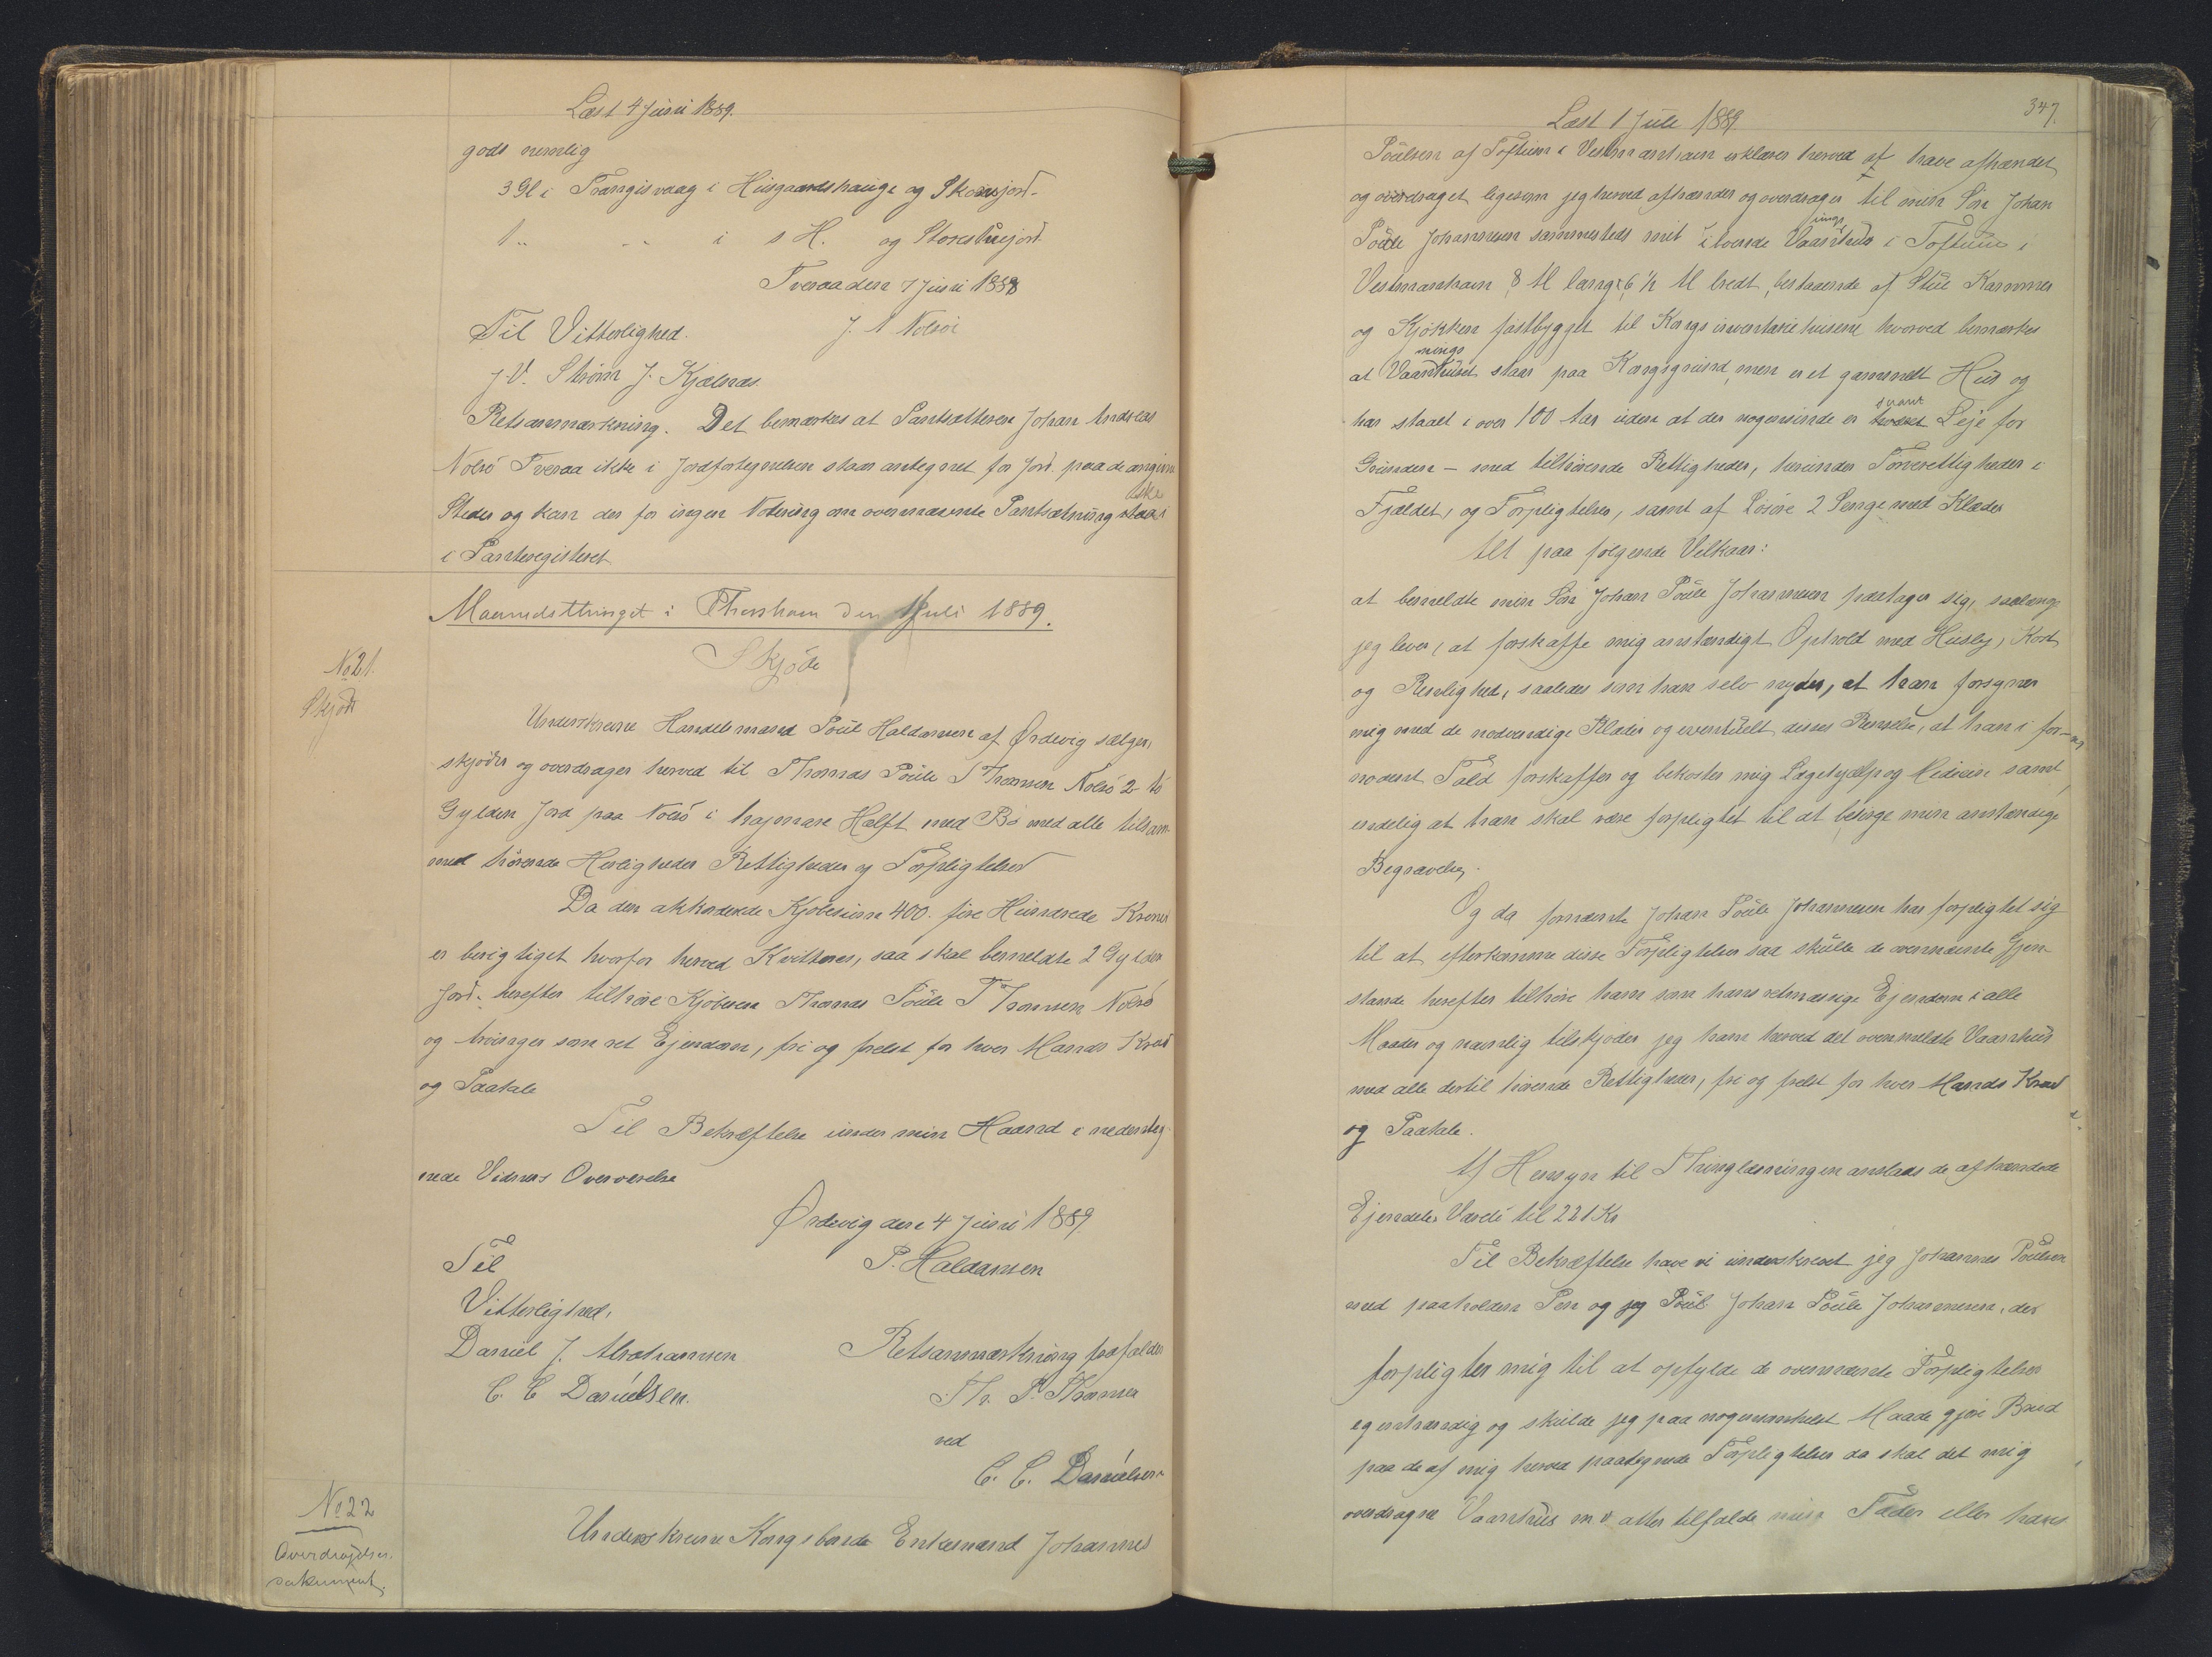 Læst 4 Juni 1889.
gods nemlig
3 Gl i Trangisvaag i Husgaardshauge og Skoresjord-
1 " " i s H. og Storestuejord.
Tveraa den 7 Juni 1888
Til Vitterlighed. J. A Nolsöe
J. V. Ström J. Kjælnæs.
Retsanmærkning. Det bemærkes at Pantsætteren Johan Andreas
Nolsö Tveraa ikke i Jordfortegnelsen staar antegnet for Jord paa de angivne
Steder og kan der for ingen Notering om ovennævnte Pantsætning ske
i Panteregisteret
Maanedsthinget i Thorshavn den 1 Juli 1889.
Skjöde
No 21.
Skjöde
Underskrevne Handelsmand Poul Haldansen af Ørdevig sælger,
skjöder og overdrager herved til Thomas Poule Thomsen Nolsö 2 to
Gylden Jord paa Nolsö i hajmare Hælft med Bö med alle tilsam-
med hörende Herligheder Rettigheder og Forpligtelser
Da den akkorderede Kjöbesum 400. fire Hundrede Kroner
er berigtiget hvorfor herved Kvitteres, saa skal bemeldte 2 Gylden
Jord herefter tilhöre Kjöberen Thomas Poule Thomsen Nolsö
og Arvinger som ret Ejendom, fri og frelst for hver Mands Krav
og Paatale
Til Bekræftelse under min Haand i nedenteg-
nede Vidners Overværelse
Ørdevig den 4 Juni 1889.
Til P. Haldansen
Vitterlighed,
Daniel J. Abrahamsen Retsanmærkning frafalder
C. C Danielsen. Th. P. Thomsen
ved
C. C. Danielsen
No 22
Overdragelses-
dokument.
Underskrevne Kongsbonde Enkemand Johannes
347.
Læst 1 Juli 1889
Poulsen af Toftum i Vestmanhavn erklærer herved at have afhændet
og overdraget ligesom jeg herved afhænder og overdrager til min Sön Johan
Poule Johannesen sammesteds mit iboende Vaaningshus i Toftum i
Vestmanhavn 8 Al langt, 6 1/2 Al bredt, bestaaende af Stue Kammer
og Kjökken fastbygget til Kongs inventariehusene hvorved bemærkes
at Vaaningshuset staar paa Kongsgrund, men er et gammelt Hus og
har staaet i over 100 Aar uden at der nogensinde er svaret Leje for
Grunden – med tilhörende Rettigheder, herunder Törverettigheder i
Fjældet, og Forpligtelser, samt af Lösöre 2 Senge med Klæder
Alt paa fölgende Vilkaar:
at bemeldte min Sön Johan Poule Johannesen paatager sig, saalænge
jeg lever, at forskaffe mig anstændigt Ophold med Husly, Kost
og Renlighed, saaledes som han selv nyder, at han forsyner
mig med de nödvendige Klæder og eventuelt disses Renselse, at han i for-
nödent Fald forskaffer og bekoster mig Lægehjælp og Medicin samt
endelig at han skal være forpligtet til at besörge min anstændige
Begravelse.
Og da fornævnte Johan Poule Johannesen har forpligtet sig
til at efterkomme disse Forpligtelser saa skulle de ovennævnte Gjen-
stande herefter tilhöre ham som hans retmæssige Ejendom i alle
Maader og navnlig tilskjöder jeg ham herved det ovenmeldte Vaanhus
med alle dertil hörende Rettigheder, fri og frelst for hver Mands Krav
og Paatale.
Af Hensyn til Thinglæsningen anslaaes de afhændede
Ejendeles Værdi til 221 Kr
Til Bekræftelse have vi underskrevet jeg Johannes Poulsen
med paaholden Pen og jeg Poul Johan Poule Johannesen, der
forpligter mig til at opfylde de ovennævnte Forpligtelser
egenhændig og skulde jeg paa nogensomhelst Maade gjöre Brud
paa de af mig herved paategnede Forpligtelser da skal det mig
overdragne Vaanhus m v atter tilfalde min Fader eller hans